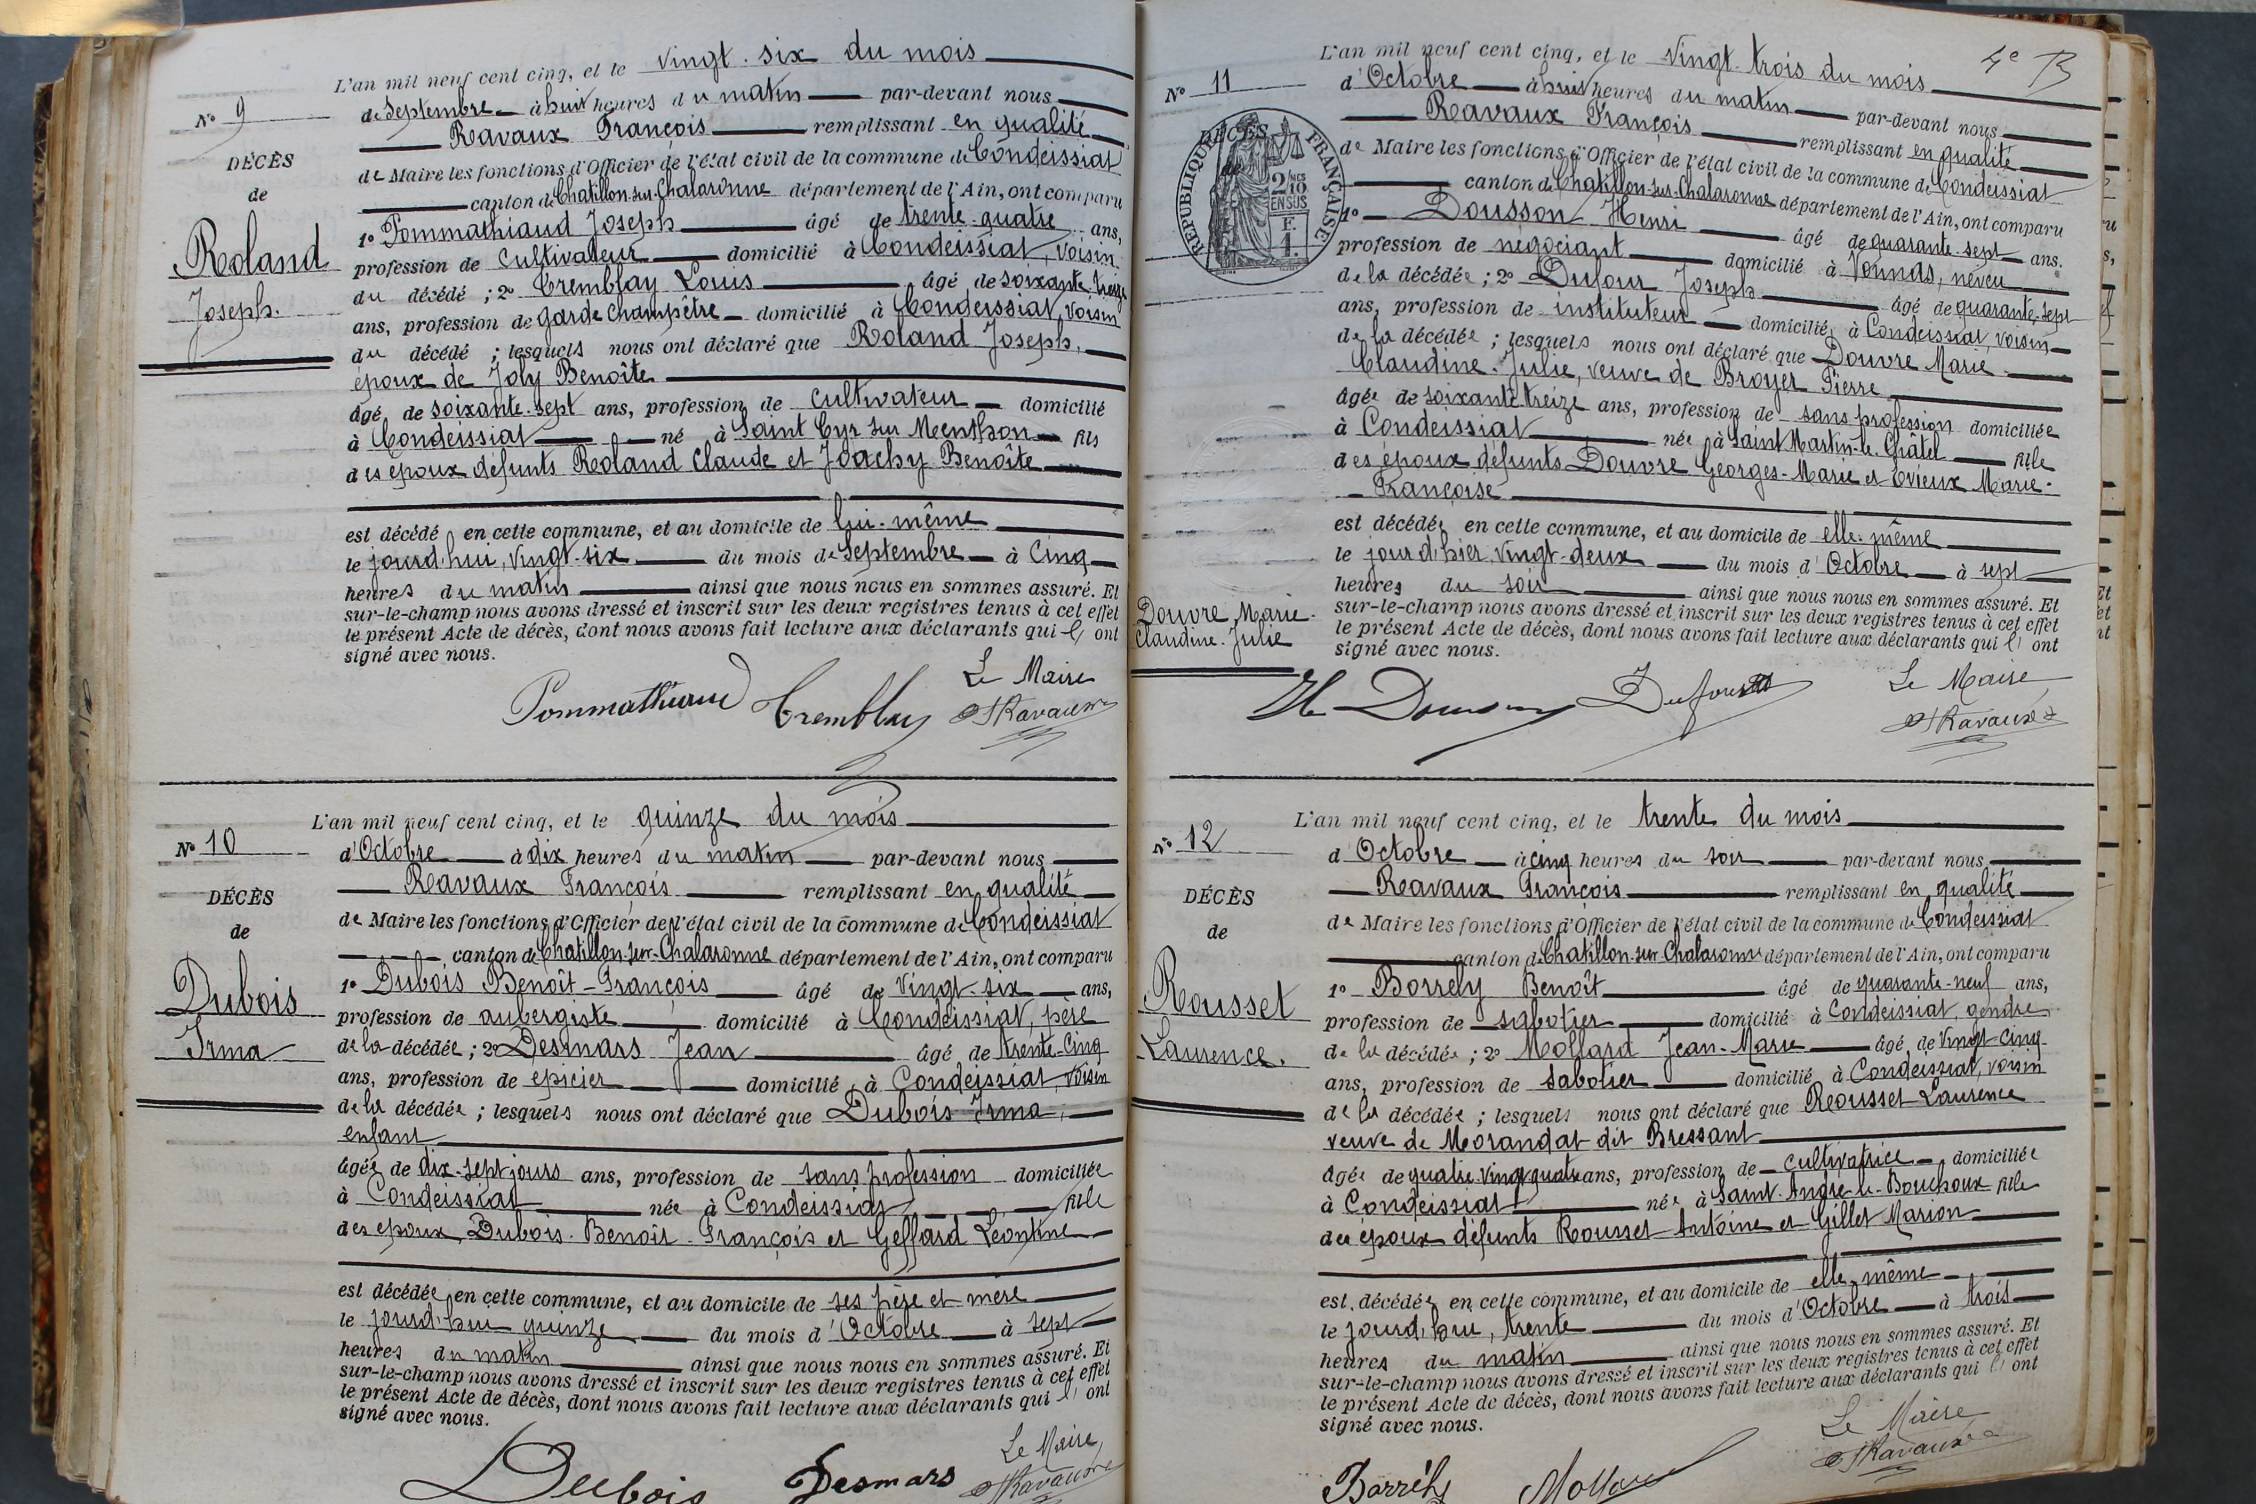 L'an mil neuf cent cinq, et le vingt-six du mois
N° 9
de Septembre à huit heures du matin par-devant nous
Ravaux François remplissant en qualité
DÉCÈS
de Maire les fonctions d'Officier de l'état civil de la commune de Condeissiat
de
canton de Chatillon-sur-Chalaronne département de l'Ain, ont comparu
1° Pommathiaud Joseph âgé de trente-quatre ans,
Roland
profession de cultivateur domicilié à Condeissiat, voisin
du décédé ; 2° Tremblay Louis âgé de soixante-treize
Joseph.
ans, profession de garde champêtre domicilié à Condeissiat, voisin
du décédé ; lesquels nous ont déclaré que Roland Joseph,
époux de Joly Benoîte
âgé de soixante-sept ans, profession de cultivateur domicilié
à Condeissiat né à Saint Cyr sur Menthon fils
des époux défunts Roland Claude et Joachy Benoîte
est décédé en cette commune, et au domicile de lui-même
le jourd'hui, vingt-six du mois de Septembre à cinq
heures du matin ainsi que nous nous en sommes assuré. Et
sur-le-champ nous avons dressé et inscrit sur les deux registres tenus à cet effet
le présent Acte de décès, dont nous avons fait lecture aux déclarants qui l' ont
signé avec nous.
Le Maire
Pommathiaud Tremblay Ravaux
L'an mil neuf cent cinq, et le quinze du mois
N° 10
d'Octobre à dix heures du matin par-devant nous
Ravaux François remplissant en qualité
DÉCÈS
de Maire les fonctions d'Officier de l'état civil de la commune de Condeissiat
de
canton de Chatillon-sur-Chalaronne département de l'Ain, ont comparu
1° Dubois Benoît-François âgé de vingt-six ans,
Dubois
profession de aubergiste domicilié à Condeissiat, père
Irma
de la décédée ; 2° Desmars Jean âgé de trente-cinq
ans, profession de épicier domicilié à Condeissiat, voisin
de la décédée ; lesquels nous ont déclaré que Dubois Irma,
enfant
âgée de dix-sept jours ans, profession de sans profession domiciliée
à Condeissiat née à Condeissiat fille
des époux Dubois Benoît-François et Geffard Léontine
est décédée en cette commune, et au domicile de ses père et mère
le jourd'hui quinze du mois d'Octobre à sept
heures du matin ainsi que nous nous en sommes assuré. Et
sur-le-champ nous avons dressé et inscrit sur les deux registres tenus à cet effet
le présent Acte de décès, dont nous avons fait lecture aux déclarants qui l' ont
signé avec nous.
Le Maire,
Dubois Desmars Ravaux
4e
L'an mil neuf cent cinq, et le vingt-trois du mois
N° 11
d'Octobre à huit heures du matin par-devant nous
Ravaux François remplissant en qualité
DÉCÈS
de
RÉPUBLIQUE FRANÇAISE
2/10 MES
EN SUS
F.
1.
de Maire les fonctions d'Officier de l'état civil de la commune de Condeissiat
canton de Chatillon-sur-Chalaronne département de l'Ain, ont comparu
1° Dousson Henri âgé de quarante-sept ans.
profession de négociant domicilié à Vonnas, neveu
de la décédée ; 2° Dufour Joseph âgé de quarante-sept
ans, profession de instituteur domicilié à Condeissiat, voisin
de la décédée ; lesquels nous ont déclaré que Douvre Marie-
Claudine-Julie, veuve de Broyer Pierre
âgée de soixante-treize ans, profession de sans profession domiciliée
à Condeissiat née à Saint Martin-le-Châtel fille
des époux défunts Douvre Georges-Marie et Evieux Marie-
Françoise
est décédée en cette commune, et au domicile de elle-même
le jour d'hier vingt-deux du mois d'Octobre à sept
heures du soir ainsi que nous nous en sommes assuré. Et
Douvre Marie-
Claudine-Julie
sur-le-champ nous avons dressé et inscrit sur les deux registres tenus à cet effet
le présent Acte de décès, dont nous avons fait lecture aux déclarants qui l' ont
signé avec nous.
Le Maire
H Dousson Dufour Ravaux
L'an mil neuf cent cinq, et le trente du mois
N° 12
d'Octobre à cinq heures du soir par-devant nous
Ravaux François remplissant en qualité
DÉCÈS
de Maire les fonctions d'Officier de l'état civil de la commune de Condeissiat
de
canton de Chatillon-sur-Chalaronne département de l'Ain, ont comparu
1° Borrely Benoît âgé de quarante-neuf ans,
Rousset
profession de sabotier domicilié à Condeissiat, gendre
Laurence.
de la décédée ; 2° Mollard Jean-Marie âgé de vingt-cinq
ans, profession de sabotier domicilié à Condeissiat, voisin
de la décédée ; lesquels nous ont déclaré que Rousset Laurence
veuve de Morandat dit Bressant
âgée de quatre-vingt-quatre ans, profession de cultivatrice domiciliée
à Condeissiat née à Saint-André-le-Bouchoux fille
des époux défunts Rousset Antoine et Gillet Marion
est décédée en cette commune, et au domicile de elle-même
le jourd'hui, trente du mois d'Octobre à trois
heures du matin ainsi que nous nous en sommes assuré. Et
sur-le-champ nous avons dressé et inscrit sur les deux registres tenus à cet effet
le présent Acte de décès, dont nous avons fait lecture aux déclarants qui l' ont
signé avec nous.
Le Maire
Barrély Mollard Ravaux